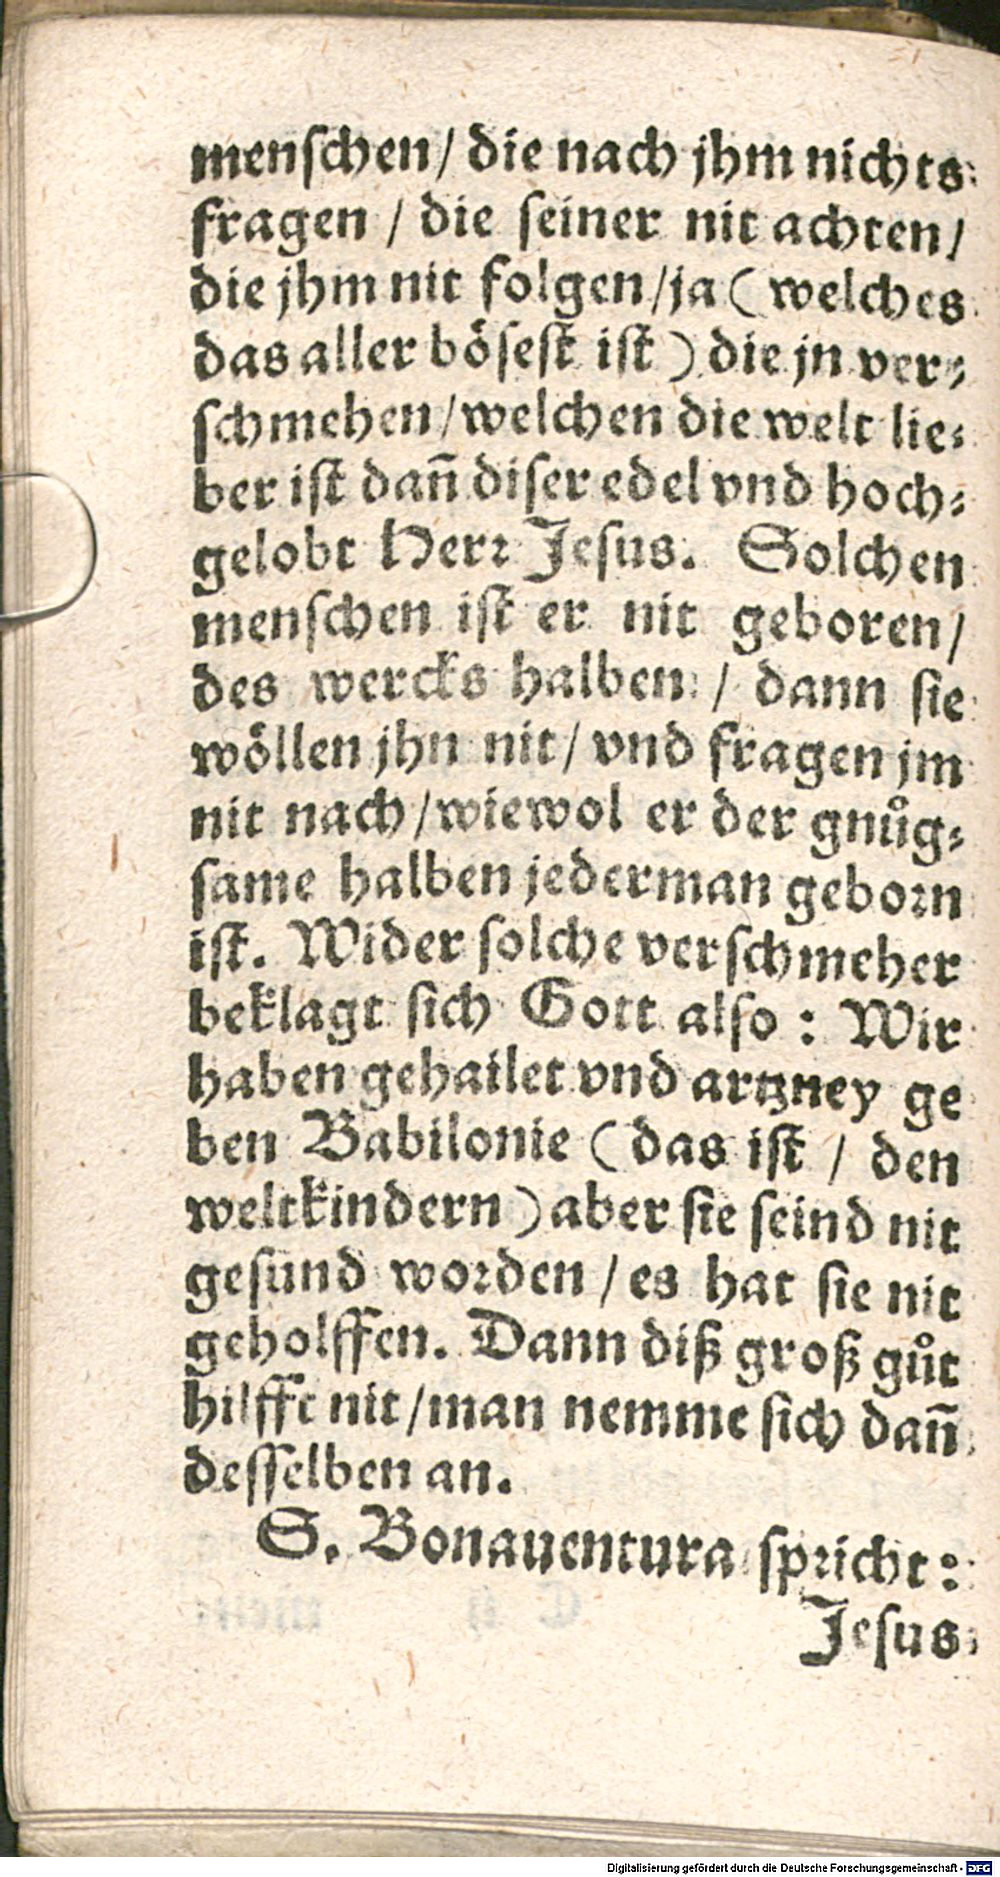 menſchen / die nach jhm nichts
fragen / die ſeiner nit achten /
die jhm nit folgen / ja ( welches
das aller böſeſt iſt ) die jn ver⸗
ſchmehen / welchen die welt lie⸗
ber iſt dañ diſer edel vnd hoch⸗
gelobt Herr Jeſus. Solchen
menſchen iſt er nit geboren /
des wercks halben / dann ſie
wöllen jhn nit / vnd fragen jm
nit nach / wiewol er der gnůg⸗
ſame halben jederman geborn
iſt. Wider ſolche verſchmeher
beklagt ſich Gott alſo : Wir
haben gehailet vnd artzney ge
ben Babilonie ( das iſt / den
weltkindern ) aber ſie ſeind nit
geſund worden / es hat ſie nit
geholffen. Dann diß groß gůt
hilfft nit / man nemme ſich dañ
deſſelben an.
S. Bonauentura ſpricht :
Jeſus
Digitalisierung gefördert durch die Deutsche Forschungsgemeinschaft - DFG